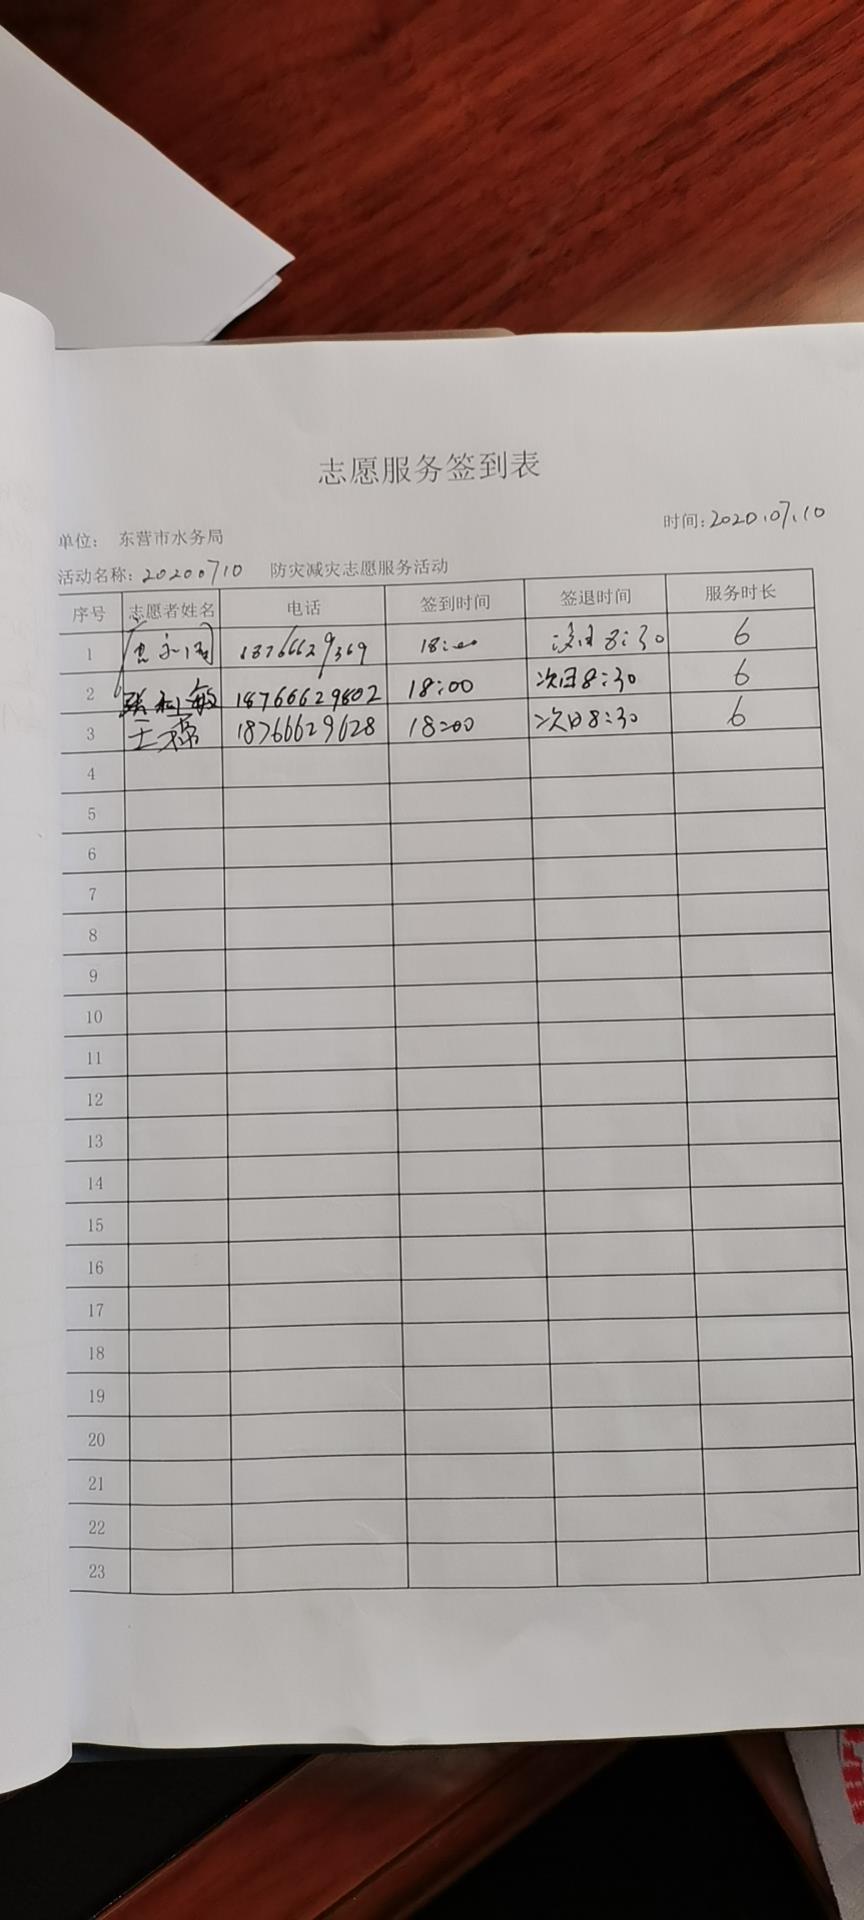 志愿服务签到表
时间:2020.07.10
单位: 东营市水务局
活动名称: 20200710 防灾减灾志愿服务活动
序号 志愿者姓名 电话 签到时间 签退时间 服务时长
1 18766629369 18:00 次日8:30 6
2 张利敏 18766629802 18:00 次日8:30 6
3 王 18766629628 18:00 次日8:30 6
4
5
6
7
8
9
10
11
12
13
14
15
16
17
18
19
20
21
22
23